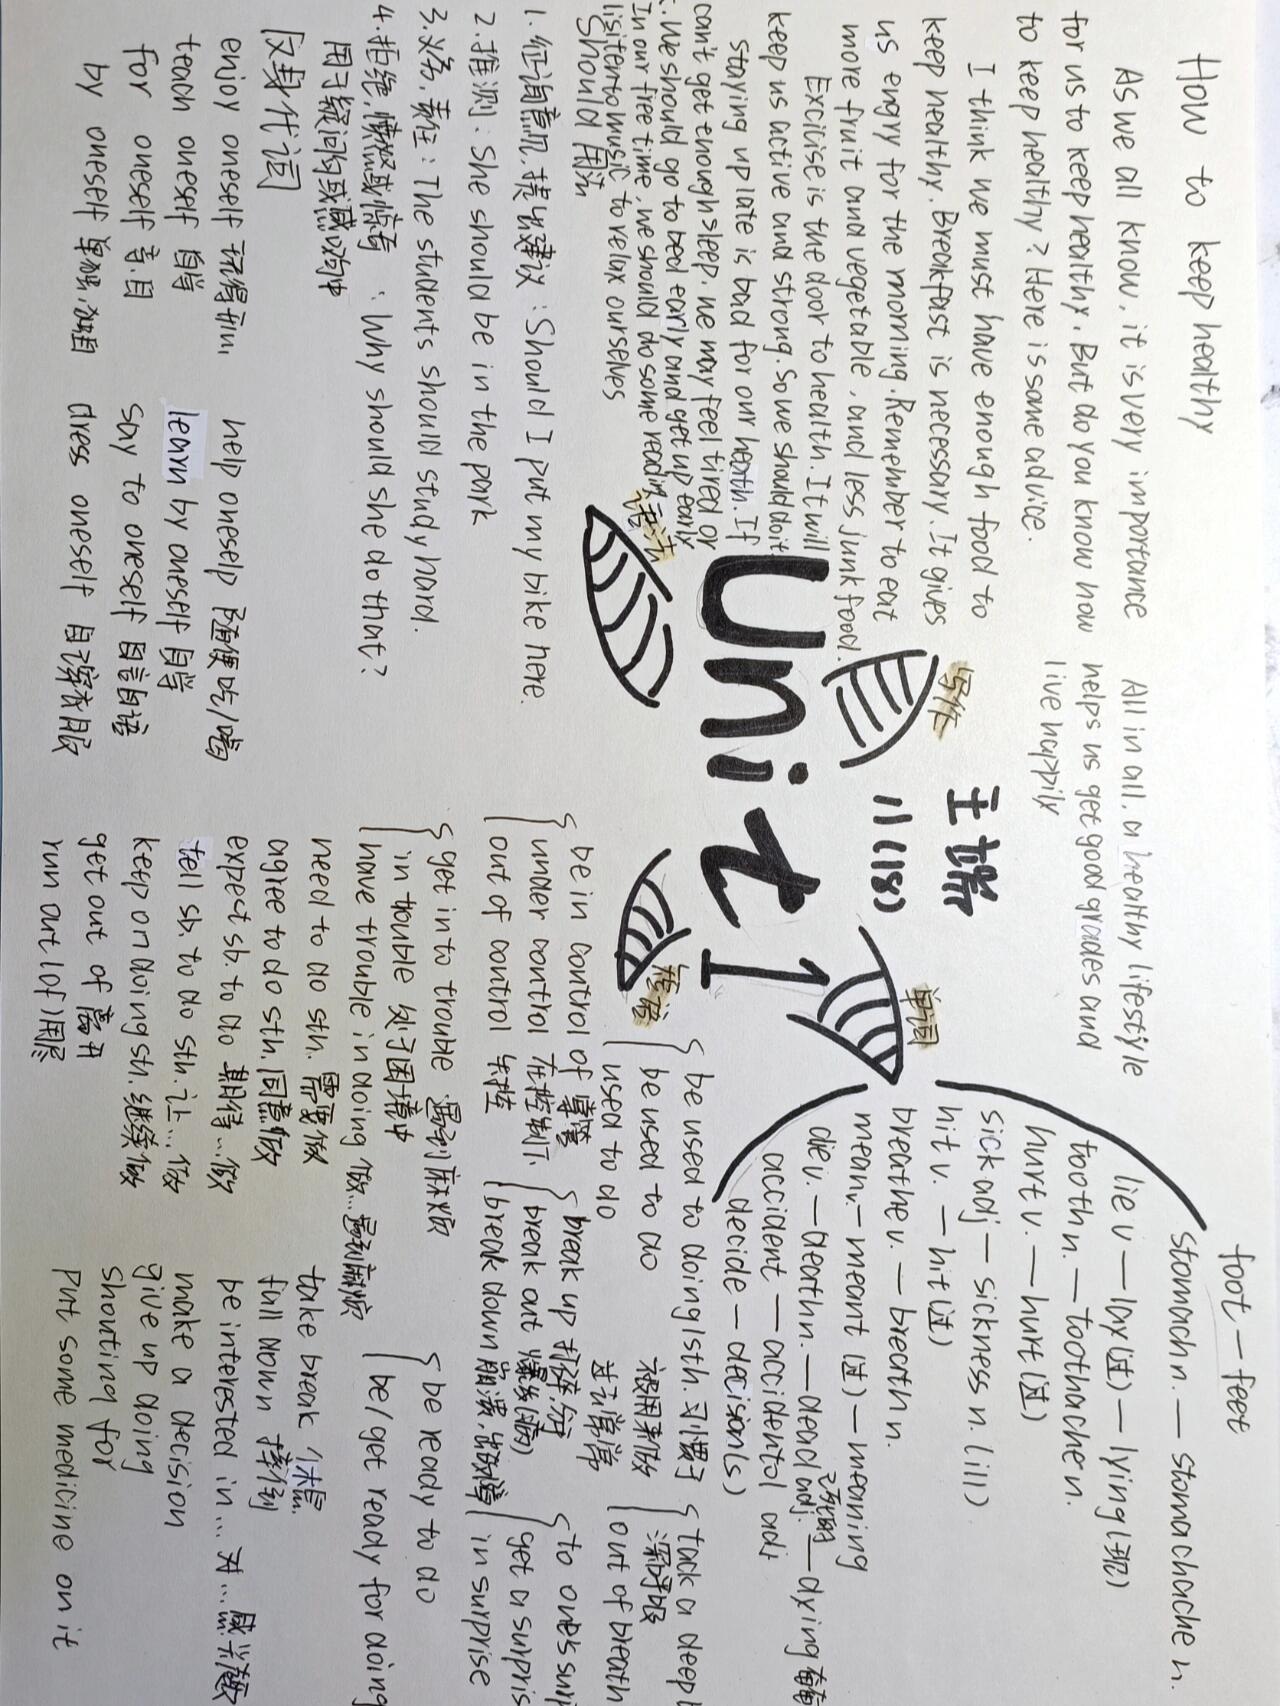 How to keep healthy
As we all know, it is very importance
for us to keep healthy. But do you know how
to keep healthy? Here is some advice.
I think we must have enough food to
keep healthy. Breakfast is necessary. It gives
us engry for the morning. Remember to eat
more fruit and vegetable, and less junk food.
Excilise is the door to health. It will
keep us active and strong. So we should do it
staying up late is bad for our heath. If
can't get enough sleep. we may feel tired or
We should go to bed early and get up early
In our free time, we should do some reading
listen to music to relax ourselves
All in all. a healthy lifestyle
helps us get good grades and
live happily
写作
主龄
11(18)
Unit 1
单词
foot — feet
stomach n. — stomachache n.
lie v — lay(过) — lying(现)
tooth n. — toothache n.
hurt v. — hurt(过)
sick adj — sickness n. (ill)
hit v. — hit(过)
breathe v. — breath n.
mean v. — meant(过) — meaning
die v. — death n. — dead adj. 已死的 — dying
accident — accidental adj
decide — decision(s)
语法
should 用法
1. 征询意见,提出建议: Should I put my bike here.
2. 推测: She should be in the park
3. 义务,责任: The students should study hard.
4. 拒绝,懒散或惊奇: Why should she do that?
用于疑问句或感叹句中
[反身代词]
enjoy oneself 玩得开心
teach oneself 自学
for oneself 亲自
by oneself 单独,独自
help oneself 随便吃/喝
learn by oneself 自学
say to oneself 自言自语
dress oneself 自己穿衣服
短语
be used to doing sth. 习惯于
be used to do 被用来做
used to do 过去常常
took a deep
深呼吸
out of breath
be in control of 掌管
under control 在控制下
out of control 失控
break up 打碎,分
break out 爆发
break down 崩溃,出故障
to one's
get a surpris
in surprise
get into trouble 遇到麻烦
in trouble 处于困境中
have trouble in doing 做...遇到麻烦
be ready to do
be/get ready for doing
need to do sth. 需要做
agree to do sth. 同意做
expect sb. to do 期待...做
tell sb. to do sth. 让...做
keep on doing sth. 继续做
get out of 离开
run out (of) 用尽
take break 休息
fall down 摔倒
be interested in ... 对...感兴趣
make a decision
give up doing
shouting for
put some medicine on it